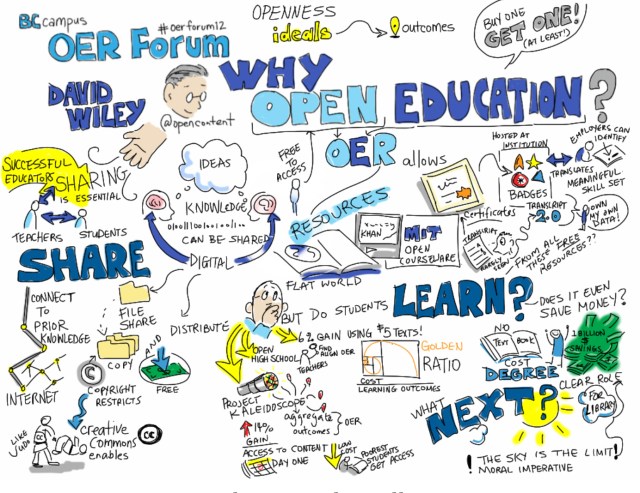 BC campus
OER FORUM
#oerforum12
OPENNESS
ideals
outcomes
BUY ONE
GET ONE!
(AT LEAST!)
DAVID
WILEY
@opencontent
WHY
OPEN EDUCATION?
SUCCESSFUL
EDUCATORS
SHARING
IS ESSENTIAL
TEACHERS
STUDENTS
IDEAS
KNOWLEDGE
CAN BE SHARED
DIGITAL
FREE
TO
ACCESS
OER
allows
RESOURCES
FLAT WORLD
KHAN
MIT
OPEN
COURSEWARE
Certificates
HOSTED AT
INSTITUTION
BADGES
TRANSLATES
EMPLOYERS CAN
IDENTIFY
MEANINGFUL
SKILL SET
TRANSCRIPT
2.0
OWN
MY OWN
DATA!
TRANSCRIPT
FROM ALL
THESE FREE
RESOURCES??
SHARE
CONNECT
TO
PRIOR
KNOWLEDGE
INTERNET
FILE
SHARE
COPY
AND
FREE
DISTRIBUTE
©
COPYRIGHT
RESTRICTS
LIKE
JUDO
CC
creative
commons
enables
CC
BUT DO STUDENTS
LEARN?
6% GAIN USING $5 TEXTS!
OPEN
HIGH SCHOOL
FIND
ALIGN OER
TEACHERS
GOLDEN
RATIO
COST
LEARNING OUTCOMES
PROJECT
KALEIDOSCOPE
aggregate
outcomes
OER
14%
GAIN
ACCESS TO CONTENT
DAY ONE
LOW
COST
POOREST
STUDENTS
GET ACCESS
DOES IT EVEN
SAVE MONEY?
NO
TEXT BOOK
COST
DEGREE
1 BILLION
$
SAVINGS
WHAT
NEXT?
CLEAR ROLE
FOR
LIBRARY
! THE SKY IS THE LIMIT!
MORAL IMPERATIVE